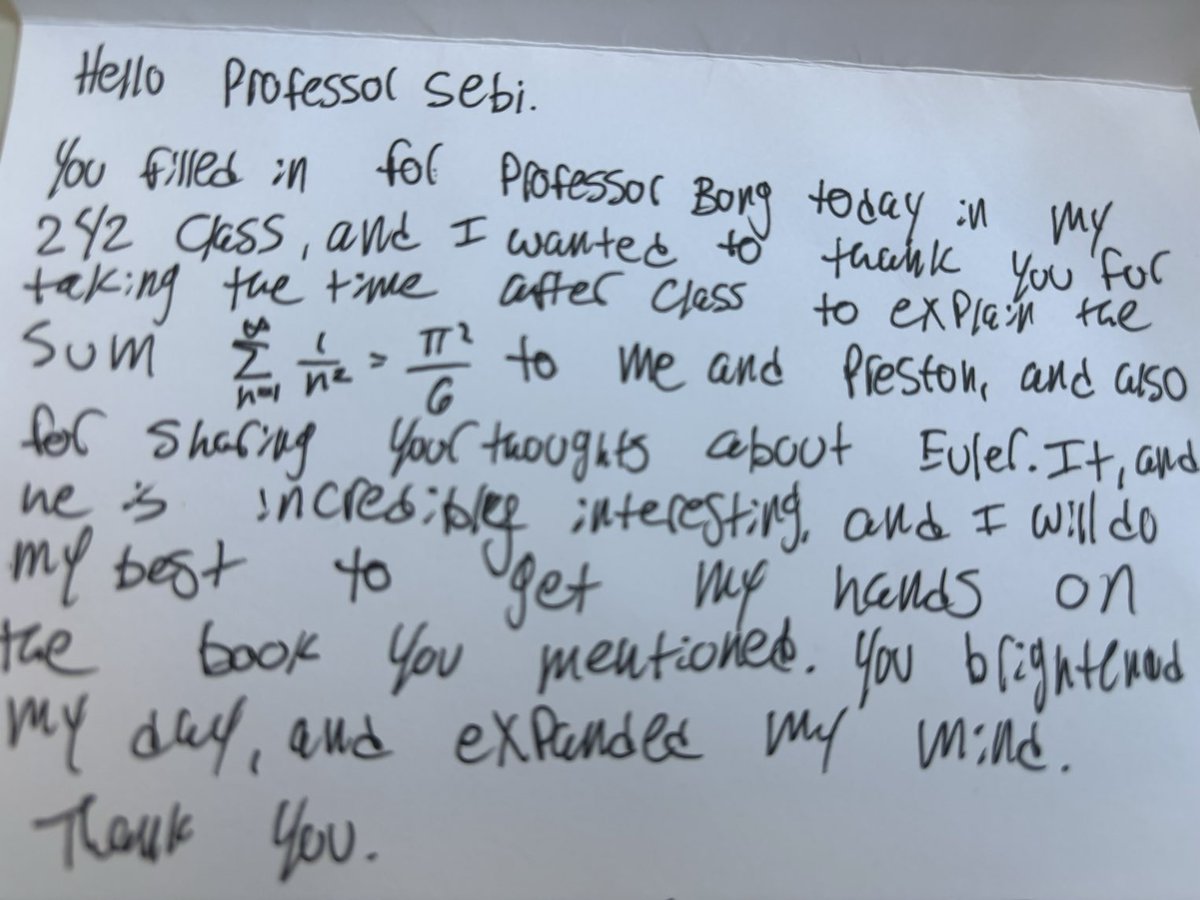 Hello Professor Sebi.
You filled in for Professor Bong today in my
242 Class, and I wanted to thank you for
taking the time after class to explain the
Sum ∞ Σ n=1 1/n² = π²/6 to me and Preston, and also
for sharing your thoughts about Euler. It, and
he is incredibley interesting, and I will do
my best to get my hands on
the book you mentioned. You brightened
my day, and expanded my mind.
Thank you.